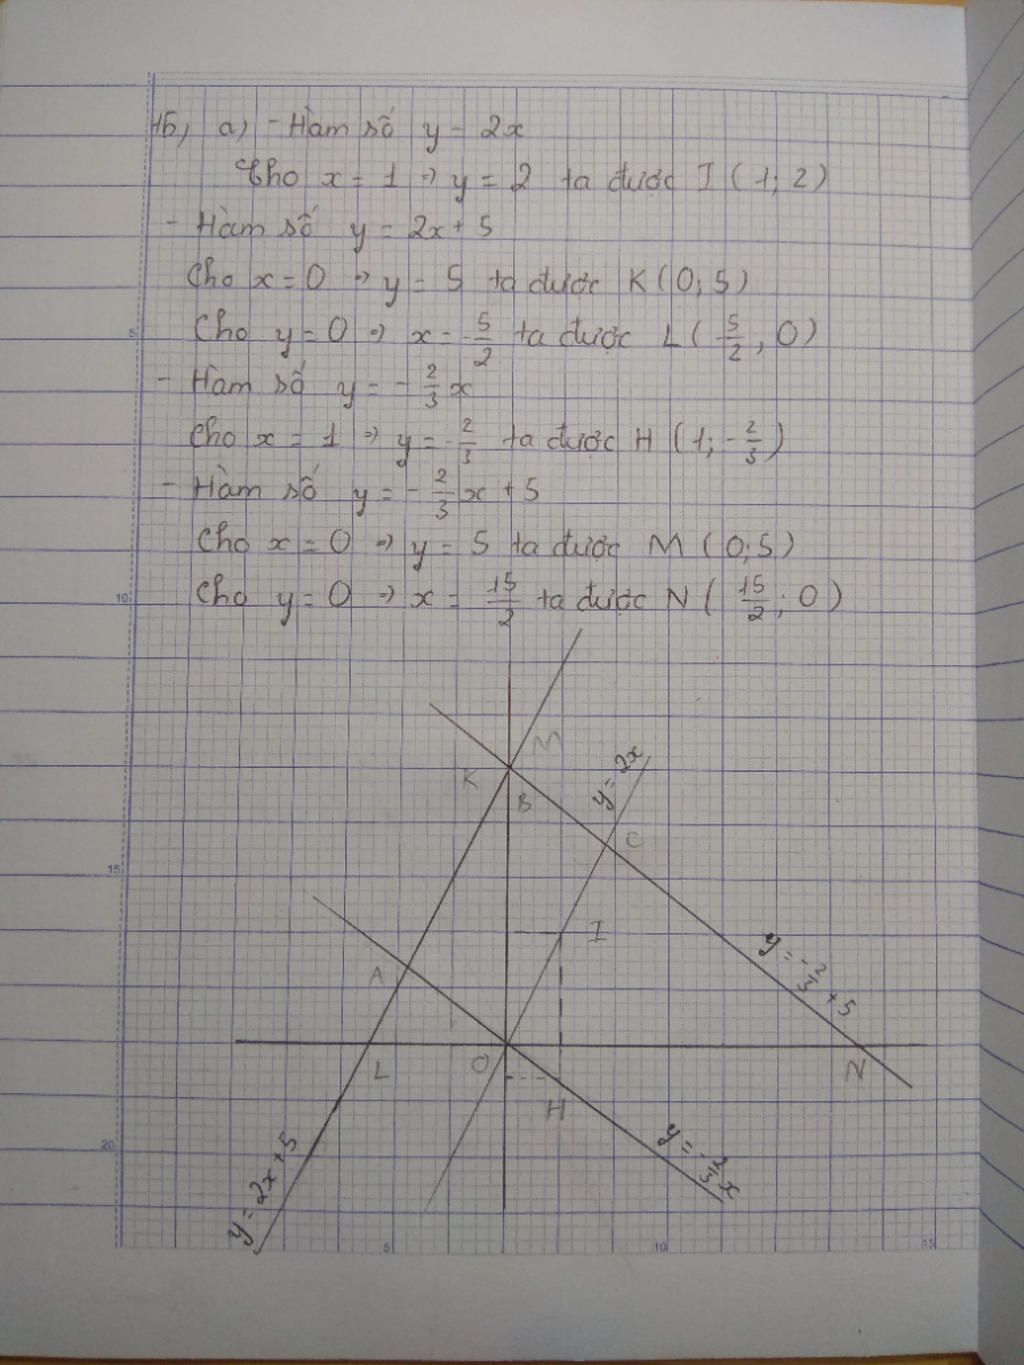 15, a) - Hàm số y = 2x
Cho x = 1 => y = 2 ta được I (1; 2)
- Hàm số y = 2x + 5
Cho x = 0 => y = 5 ta được K (0; 5)
5
Cho y = 0 => x = -5/2 ta được L ( 5/2 , 0)
- Hàm số y = - 2/3 x
Cho x = 1 => y = -2/3 ta được H (1; -2/3)
- Hàm số y = - 2/3 x + 5
Cho x = 0 => y = 5 ta được M (0; 5)
10
Cho y = 0 => x = 15/2 ta được N ( 15/2 ; 0)
M
K
B
y = 2x
C
15
I
A
y = -2/3 + 5
L
O
N
H
20
y = 2x + 5
y = -2/3 x
5
10
15